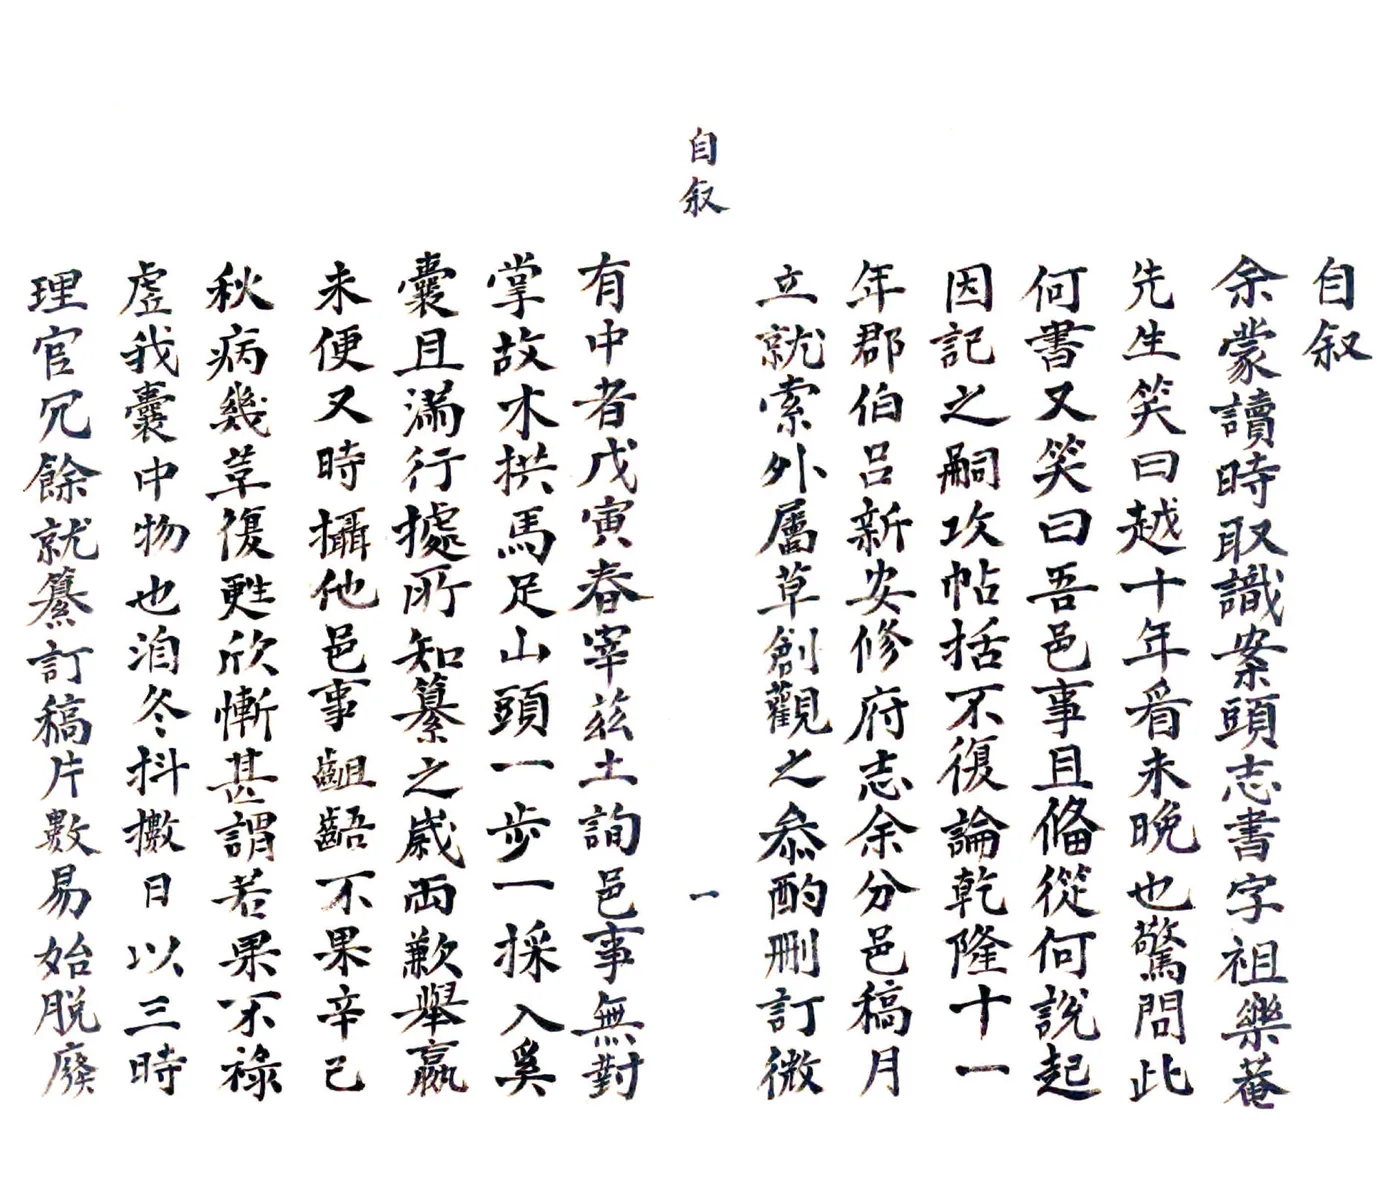 自叙
余蒙讀時取識案頭志書字祖樂菴
先生笑曰越十年看未晚也驚問此
何書又笑曰吾邑事且俻從何說起
因記之嗣攻帖括不復論乾隆十一
年郡伯呂新安修府志余分邑稿月
立就索外屬草創觀之叅酌刪訂微
自叙
一
有中者戊寅春宰兹土詢邑事無對
掌故木拱馬足山頭一步一採入奚
囊且滿行據所知纂之歲兩歉舉羸
未便又時攝他邑事齟齬不果辛巳
秋病幾草復甦欣慚甚謂若果不祿
虛我囊中物也洎冬抖擻日以三時
理官冗餘就纂訂稿片數易始脫廢